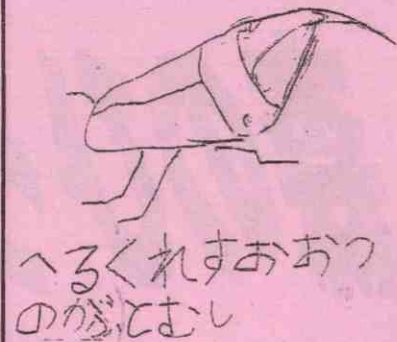 へるくれすおおつ
のがぶとむし